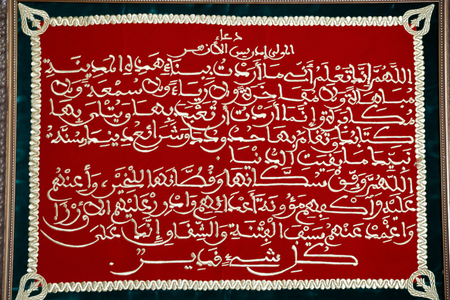 دعاء
المولى إدريس الأزهر
اللهم إنك تعلم أني ما أردت ببناء هذه المدينة
مباهاة ولا مفاخرة ولا رياء ولا سمعة ولا
مكابرة وإنما أردت أن تعبد بها ويتلى بها
كتابك وتقام بها حدودك وشرائع دينك وسنة
نبيك ما بقيت الدنيا.
اللهم وفق سكانها وقطانها للخير، وأعنهم
عليه واكفهم مؤونة أعدائهم وأدرر عليهم الأرزاق
واغمد عنهم سيف الفتنة والشقاق إنك على
كل شيء قدير.